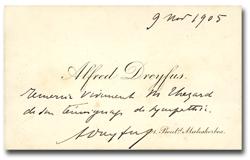 9 Nov 1905
Alfred Dreyfus
Remercie vivement M
de son témoignage de sympathie.
ADreyfus
Boul.d Malesherbes